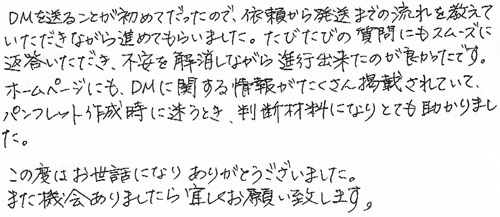 DMを送ることが初めてだったので、依頼から発送までの流れを教えて
いただきながら進めてもらいました。たびたびの質問にもスムーズに
返答いただき、不安を解消しながら進行出来たのが良かったです。
ホームページにも、DMに関する情報がたくさん掲載されていて、
パンフレット作成時に迷うとき、判断材料になりとても助かりまし
た。
この度はお世話になりありがとうございました。
また機会ありましたら宜しくお願い致します。